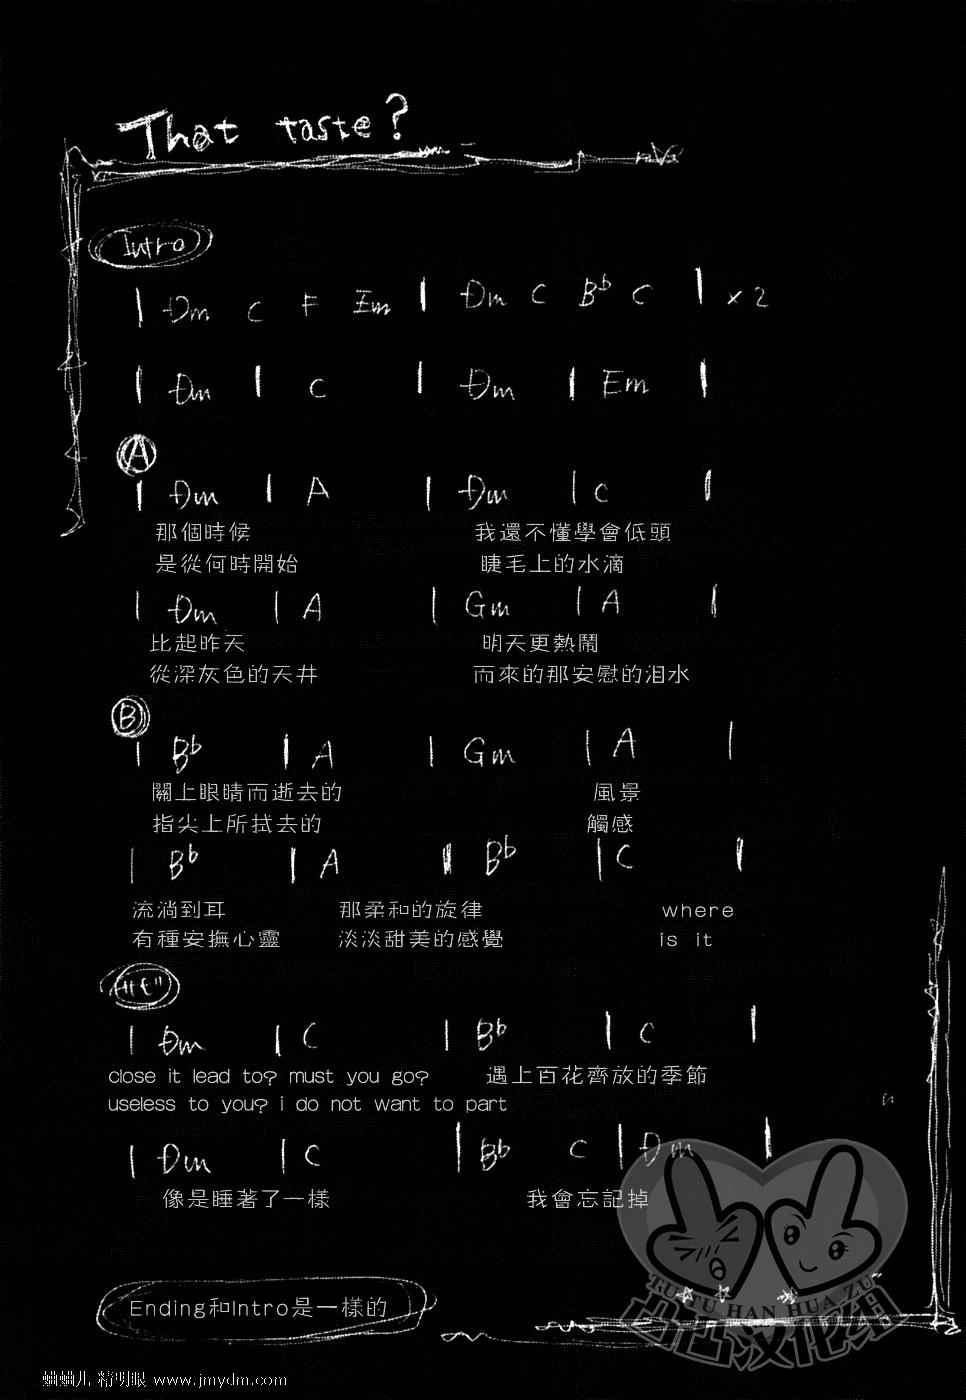 That taste?
Intro
| Dm C F Em | Dm C B♭ C | ×2
| Dm | C | Dm | Em |
A
| Dm | A | Dm | C |
那個時候 我還不懂學會低頭
是從何時開始 睫毛上的水滴
| Dm | A | Gm | A |
比起昨天 明天更熱鬧
從深灰色的天井 而來的那安慰的泪水
B
| B♭ | A | Gm | A |
關上眼睛而逝去的 風景
指尖上所拭去的 觸感
| B♭ | A | B♭ | C |
流淌到耳 那柔和的旋律 where
有種安撫心靈 淡淡甜美的感覺 is it
サビ
| Dm | C | B♭ | C |
close it lead to? must you go? 遇上百花齊放的季節
useless to you? i do not want to part
| Dm | C | B♭ C | Dm |
像是睡著了一樣 我會忘記掉
Ending和Intro是一樣的
TU TU HAN HUA ZU
凸凸汉化组
蝈蝈儿 精明眼 www.jmydm.com